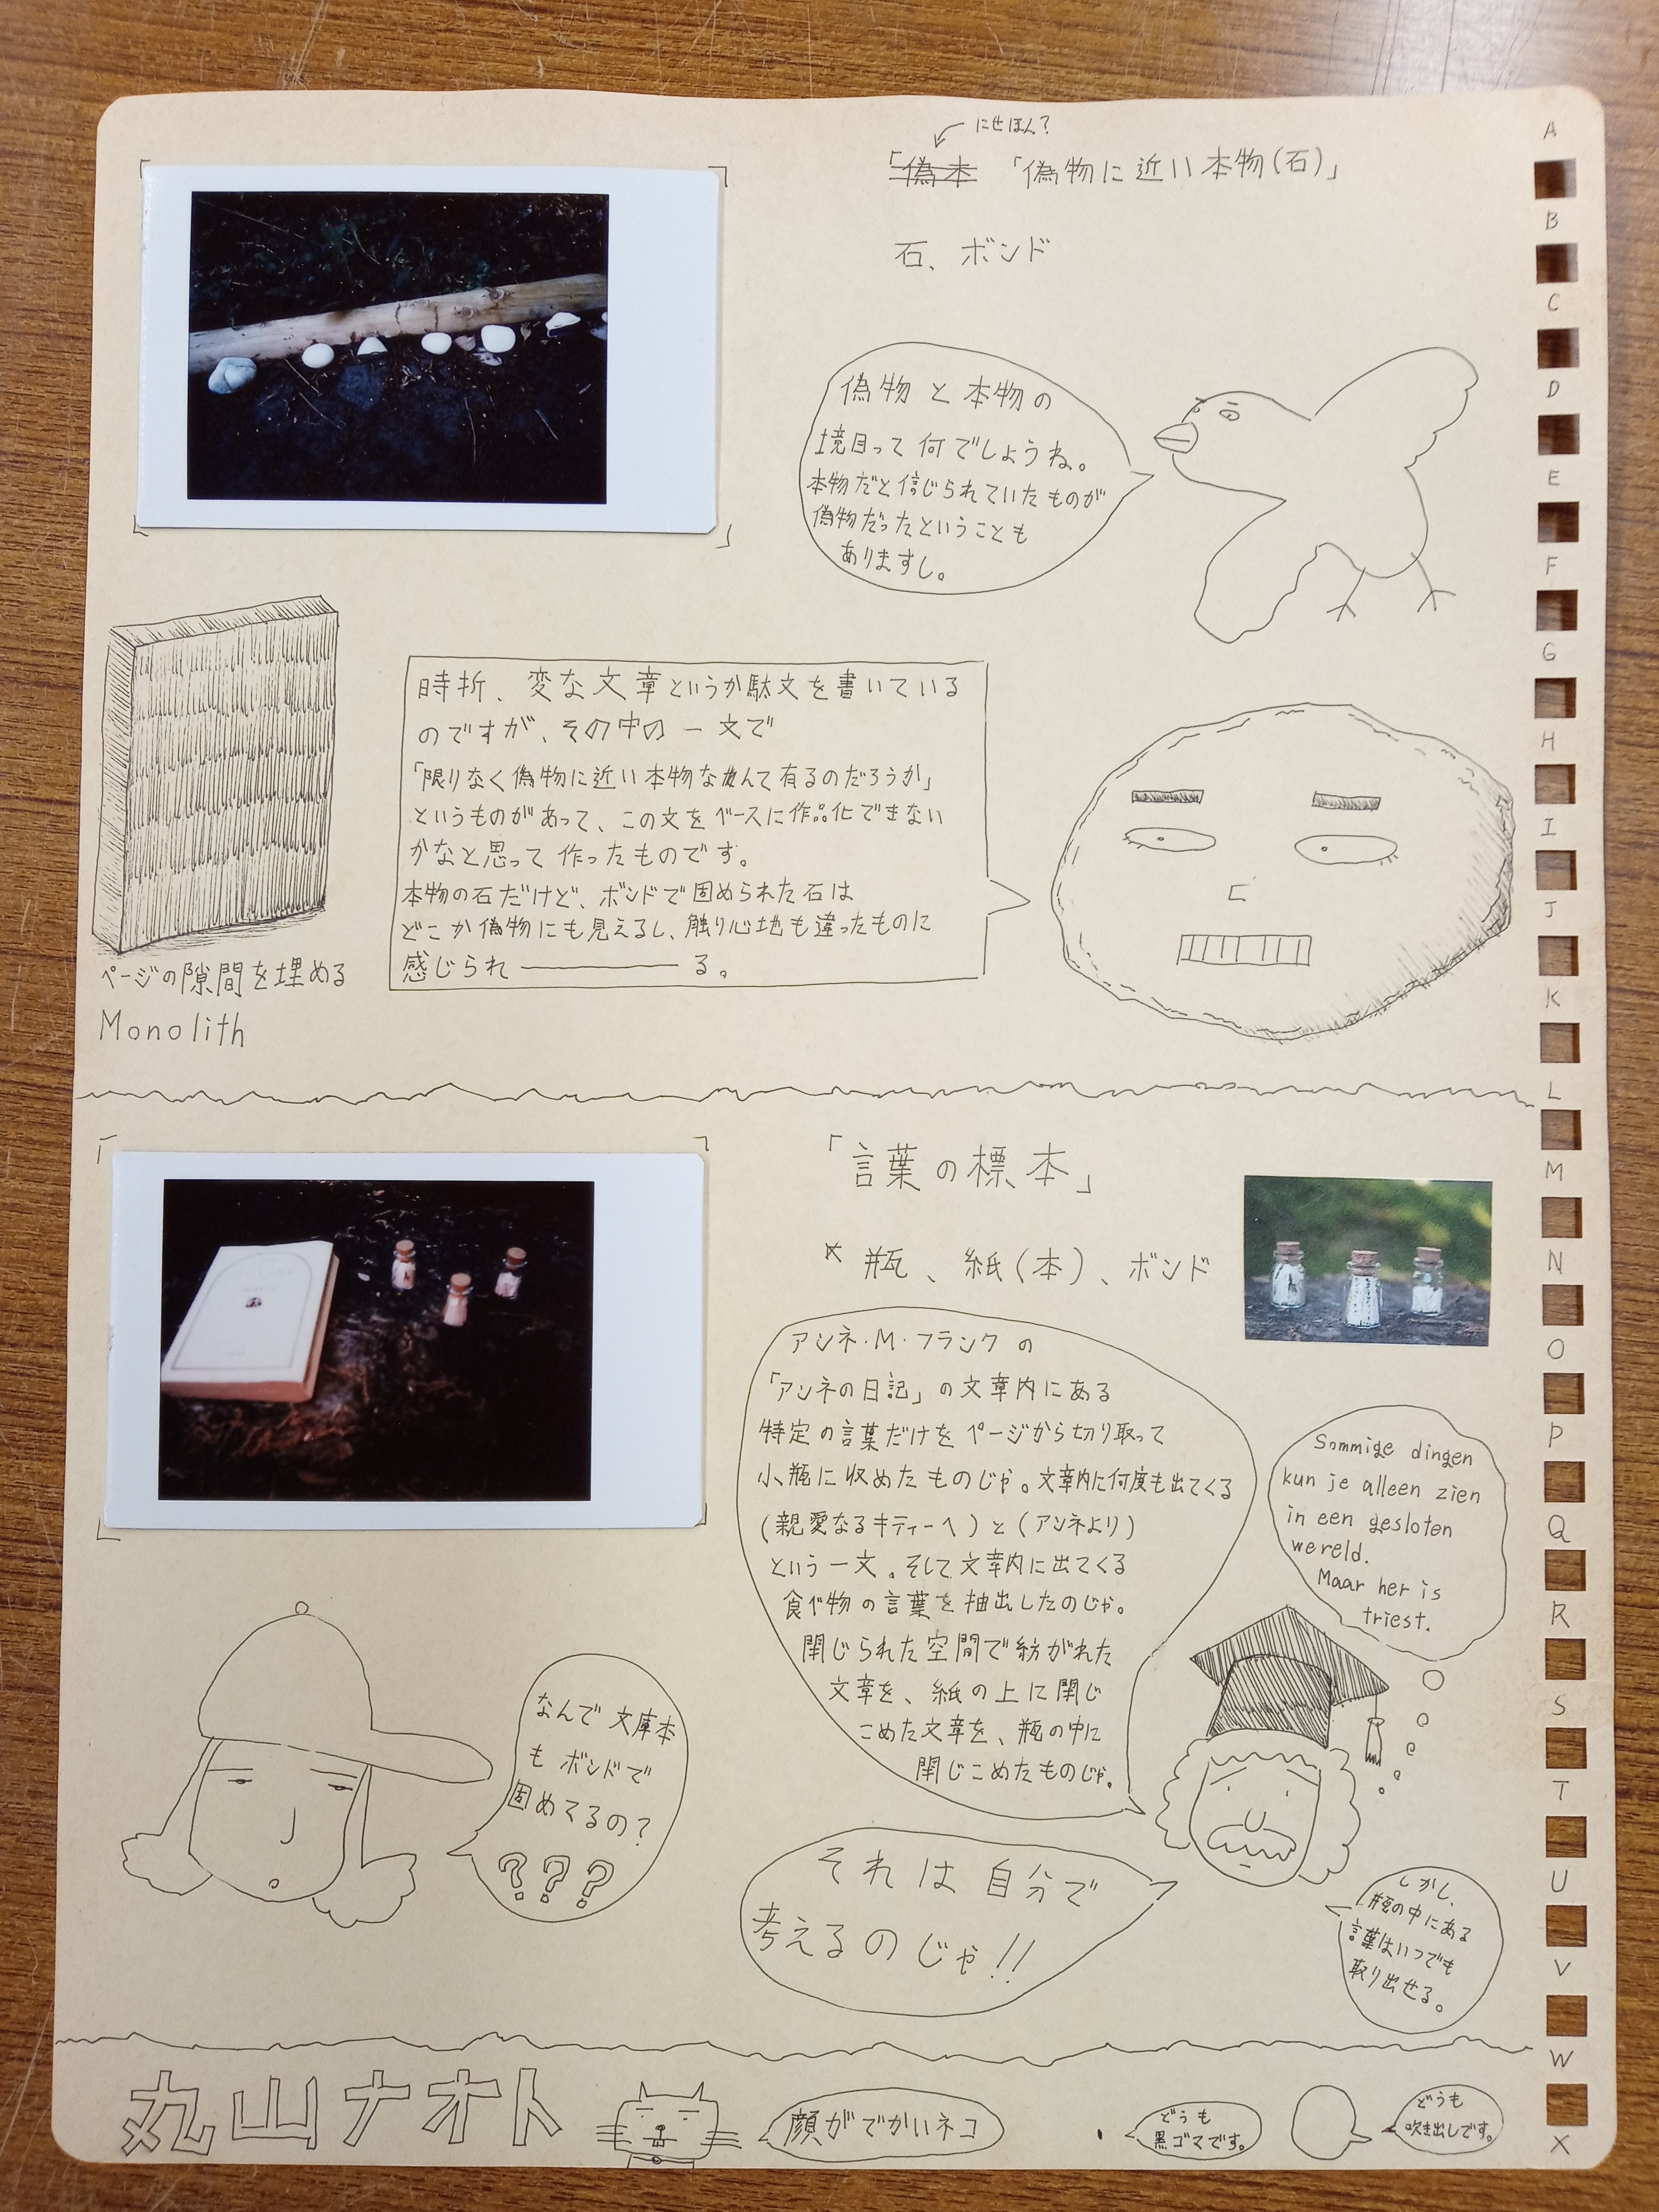 にせほん?
「偽本 「偽物に近い本物(石)」
石、ボンド
偽物と本物の
境目って何でしょうね。
本物だと信じられていたものが
偽物だったということも
ありますし。
時折、変な文章というか駄文を書いている
のですが、その中の一文で
「限りなく偽物に近い本物なんて有るのだろうか」
というものがあって、この文をベースに作品化できない
かなと思って作ったものです。
本物の石だけど、ボンドで固められた石は
どこか偽物にも見えるし、触り心地も違ったものに
感じられ――――る。
ページの隙間を埋める
Monolith
「言葉の標本」
* 瓶、紙(本)、ボンド
アンネ・M・フランクの
「アンネの日記」の文章内にある
特定の言葉だけをページから切り取って
小瓶に収めたものじゃ。文章内に何度も出てくる
(親愛なるキティーへ)と(アンネより)
という一文。そして文章内に出てくる
食べ物の言葉を抽出したのじゃ。
閉じられた空間で紡がれた
文章を、紙の上に閉じ
こめた文章を、瓶の中に
閉じこめたものじゃ。
Sommige dingen
kun je alleen zien
in een gesloten
wereld.
Maar her is
triest.
なんで文庫本
もボンドで
固めてるの?
???
それは自分で
考えるのじゃ!!
しかし、
瓶の中にある
言葉はいつでも
取り出せる。
丸山ナオト
顔がでかいネコ
どうも
黒ゴマです。
どうも
吹き出しです。
A
B
C
D
E
F
G
H
I
J
K
L
M
N
O
P
Q
R
S
T
U
V
W
X